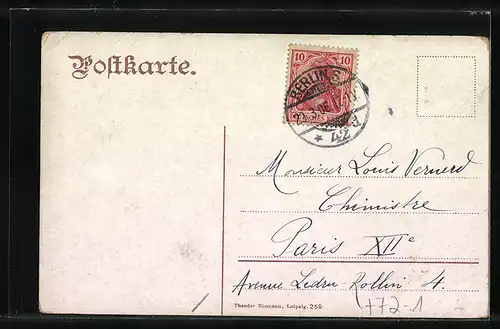 Postkarte.
10 10
BERLIN S.
42
Monsieur Louis Vernerd
Chimistre
Paris XIIe
Avenue Ledru-Rollin 4.
Theodor Eismann, Leipzig. 259
+72-1